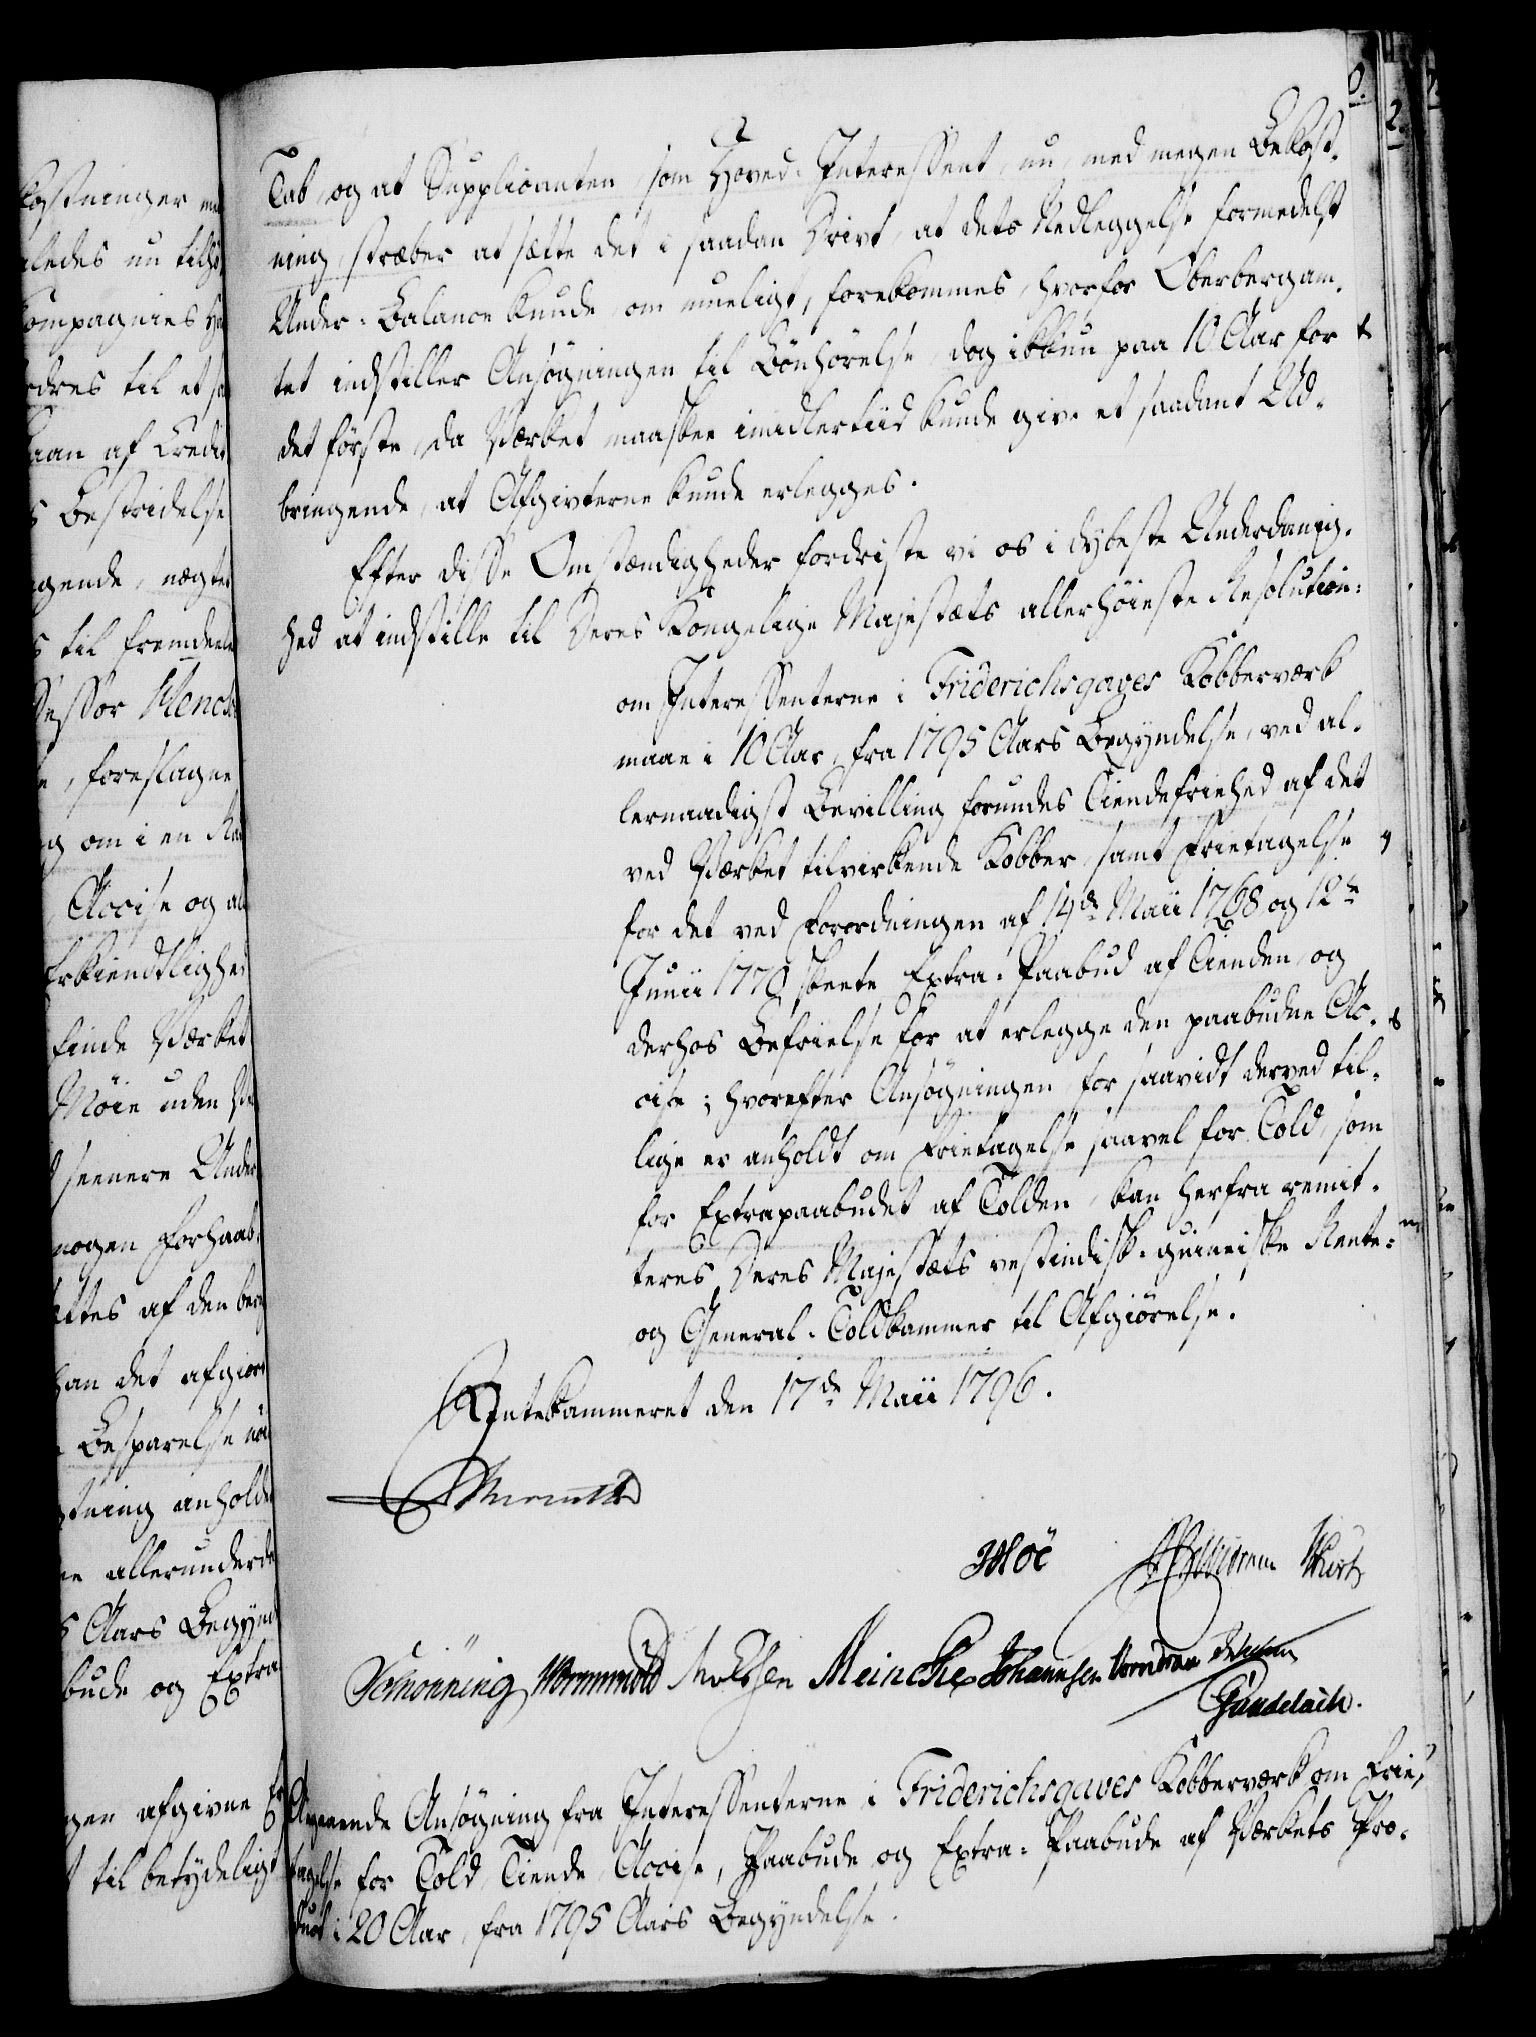 Tab, og at Supplicanten, som Hoved-Interessent, nu, med megen Bekost-
ning, stræber at sætte det i saadan Drivt, at dets Nedleggelse formedelst
Under-Balance kunde, om mueligt, forekommes, hvorfor Oberbergam-
tet indstiller Ansøgningen til Bønhørelse, dog ikkun paa 10 Aar for
det første, da Værket maaskee imidlertiid kunde give et saadant Ud-
bringende, at Afgivterne kunde erlegges.
Efter disse Omstændigheder fordriste vi os i dybeste Underdanig-
hed at indstille til Deres Kongelige Majestæts allerhøieste Resolution:
om Interessenterne i Friderichsgaves Kobberværk
maae i 10 Aar, fra 1795 Aars Begyndelse, ved al-
lernaadigst Bevilling forundes Tiendefriehed af det
ved Værket tilvirkende Kobber, samt Frietagelse
for det ved Forordningen af 14de Maii 1768 og 12te
Junii 1770 skeete Extra-Paabud af Tienden, og
derhos Befrielse for at erlegge den paabudne Ac-
cise; hvorefter Ansøgningen, for saavidt derved til-
lige er anholdt om Frietagelse saavel for Told, som
for Extrapaabudet af Tolden, kan herfra remit-
teres Deres Majestæts vestindisk-guineiske Rente-
og General-Toldkammer til Afgiørelse.
Rentekammeret den 17de Maii 1796.
Schønning Wormskiold Meincke Johannsen
Guldelach.
Angaaende Ansøgning fra Interessenterne i Friderichsgaves Kobberværk om Frie-
tagelse for Told, Tiende, Accise, Paabude og Extra-Paabude af Værkets Pro-
duct i 20 Aar, fra 1795 Aars Begyndelse.